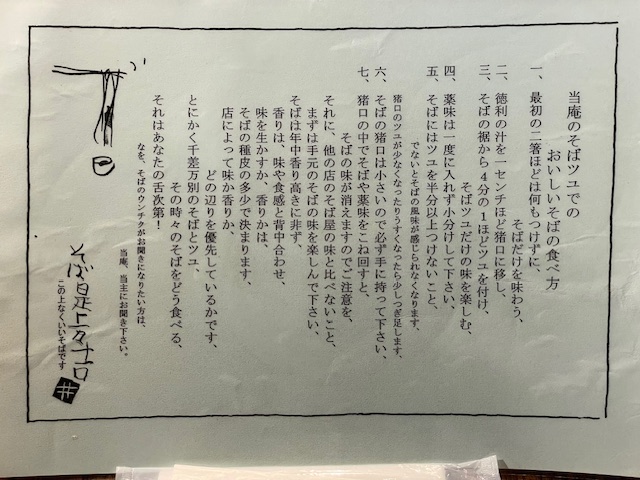 当庵のそばツユでの
おいしいそばの食べ方
一、最初の二箸ほどは何もつけずに、
そばだけを味わう、
二、徳利の汁を一センチほど猪口に移し、
三、そばの裾から4分の1ほどツユを付け、
そばツユだけの味を楽しむ、
四、薬味は一度に入れず小分けして下さい、
五、そばにはツユを半分以上つけないこと、
でないとそばの風味が感じられなくなります、
猪口のツユが少なくなったりうすくなったら少しつぎ足します、
六、そばの猪口は小さいので必ず手に持って下さい、
七、猪口の中でそばや薬味をこね回すと、
そばの味が消えますのでご注意を、
それに、他の店のそば屋の味と比べないこと、
まずは手元のそばの味を楽しんで下さい、
そばは年中香り高きに非ず、
香りは、味や食感と背中合わせ、
味を生かすか、香りかは、
そばの種皮の多少で決まります、
店によって味か香りか、
どの辺りを優先しているかです、
とにかく千差万別のそばとツユ、
その時々のそばをどう食べる、
それはあなたの舌次第!
なを、そばのウンチクがお聞きになりたい方は、
当庵、当主にお聞き下さい。
この上なくいいそばです